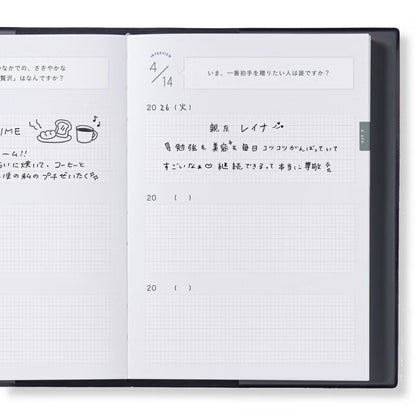 なかでの、ささやかな
贅沢」はなんですか？
IME
ーム!!
いに焼いて、コーヒーと
の私のプチぜいたく
INTERVIEW
4/14
いま、一番拍手を贈りたい人は誰ですか？
2026(火)
親友 レイナ
勉強も 美容も 毎日 コツコツがんばっていて
すごいなぁ♡ 継続できるって 本当に 尊敬
20 ( )
20 ( )